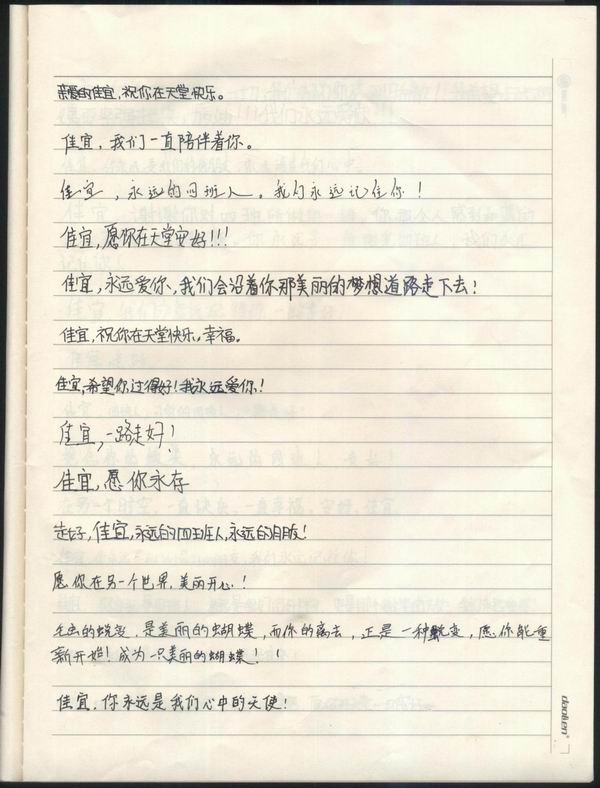 亲爱的佳宜,祝你在天堂快乐。
佳宜,我们一直陪伴着你。
佳宜,永远的四班人。我们永远记住你!
佳宜,愿你在天堂安好!!!
佳宜,永远爱你、我们会沿着你那美丽的梦想道路走下去!
佳宜,祝你在天堂快乐,幸福。
佳宜,希望你过得好!我永远爱你!
佳宜,一路走好!
佳宜,愿你永存
走好,佳宜,永远的四班人,永远的朋友!
愿你在另一个世界,美丽开心!
的蜕变,是美丽的蝴蝶,而你的离去,正是一种蜕变,愿你能重
新开始!成为一只美丽的蝴蝶!!
佳宜,你永远是我们心中的天使!